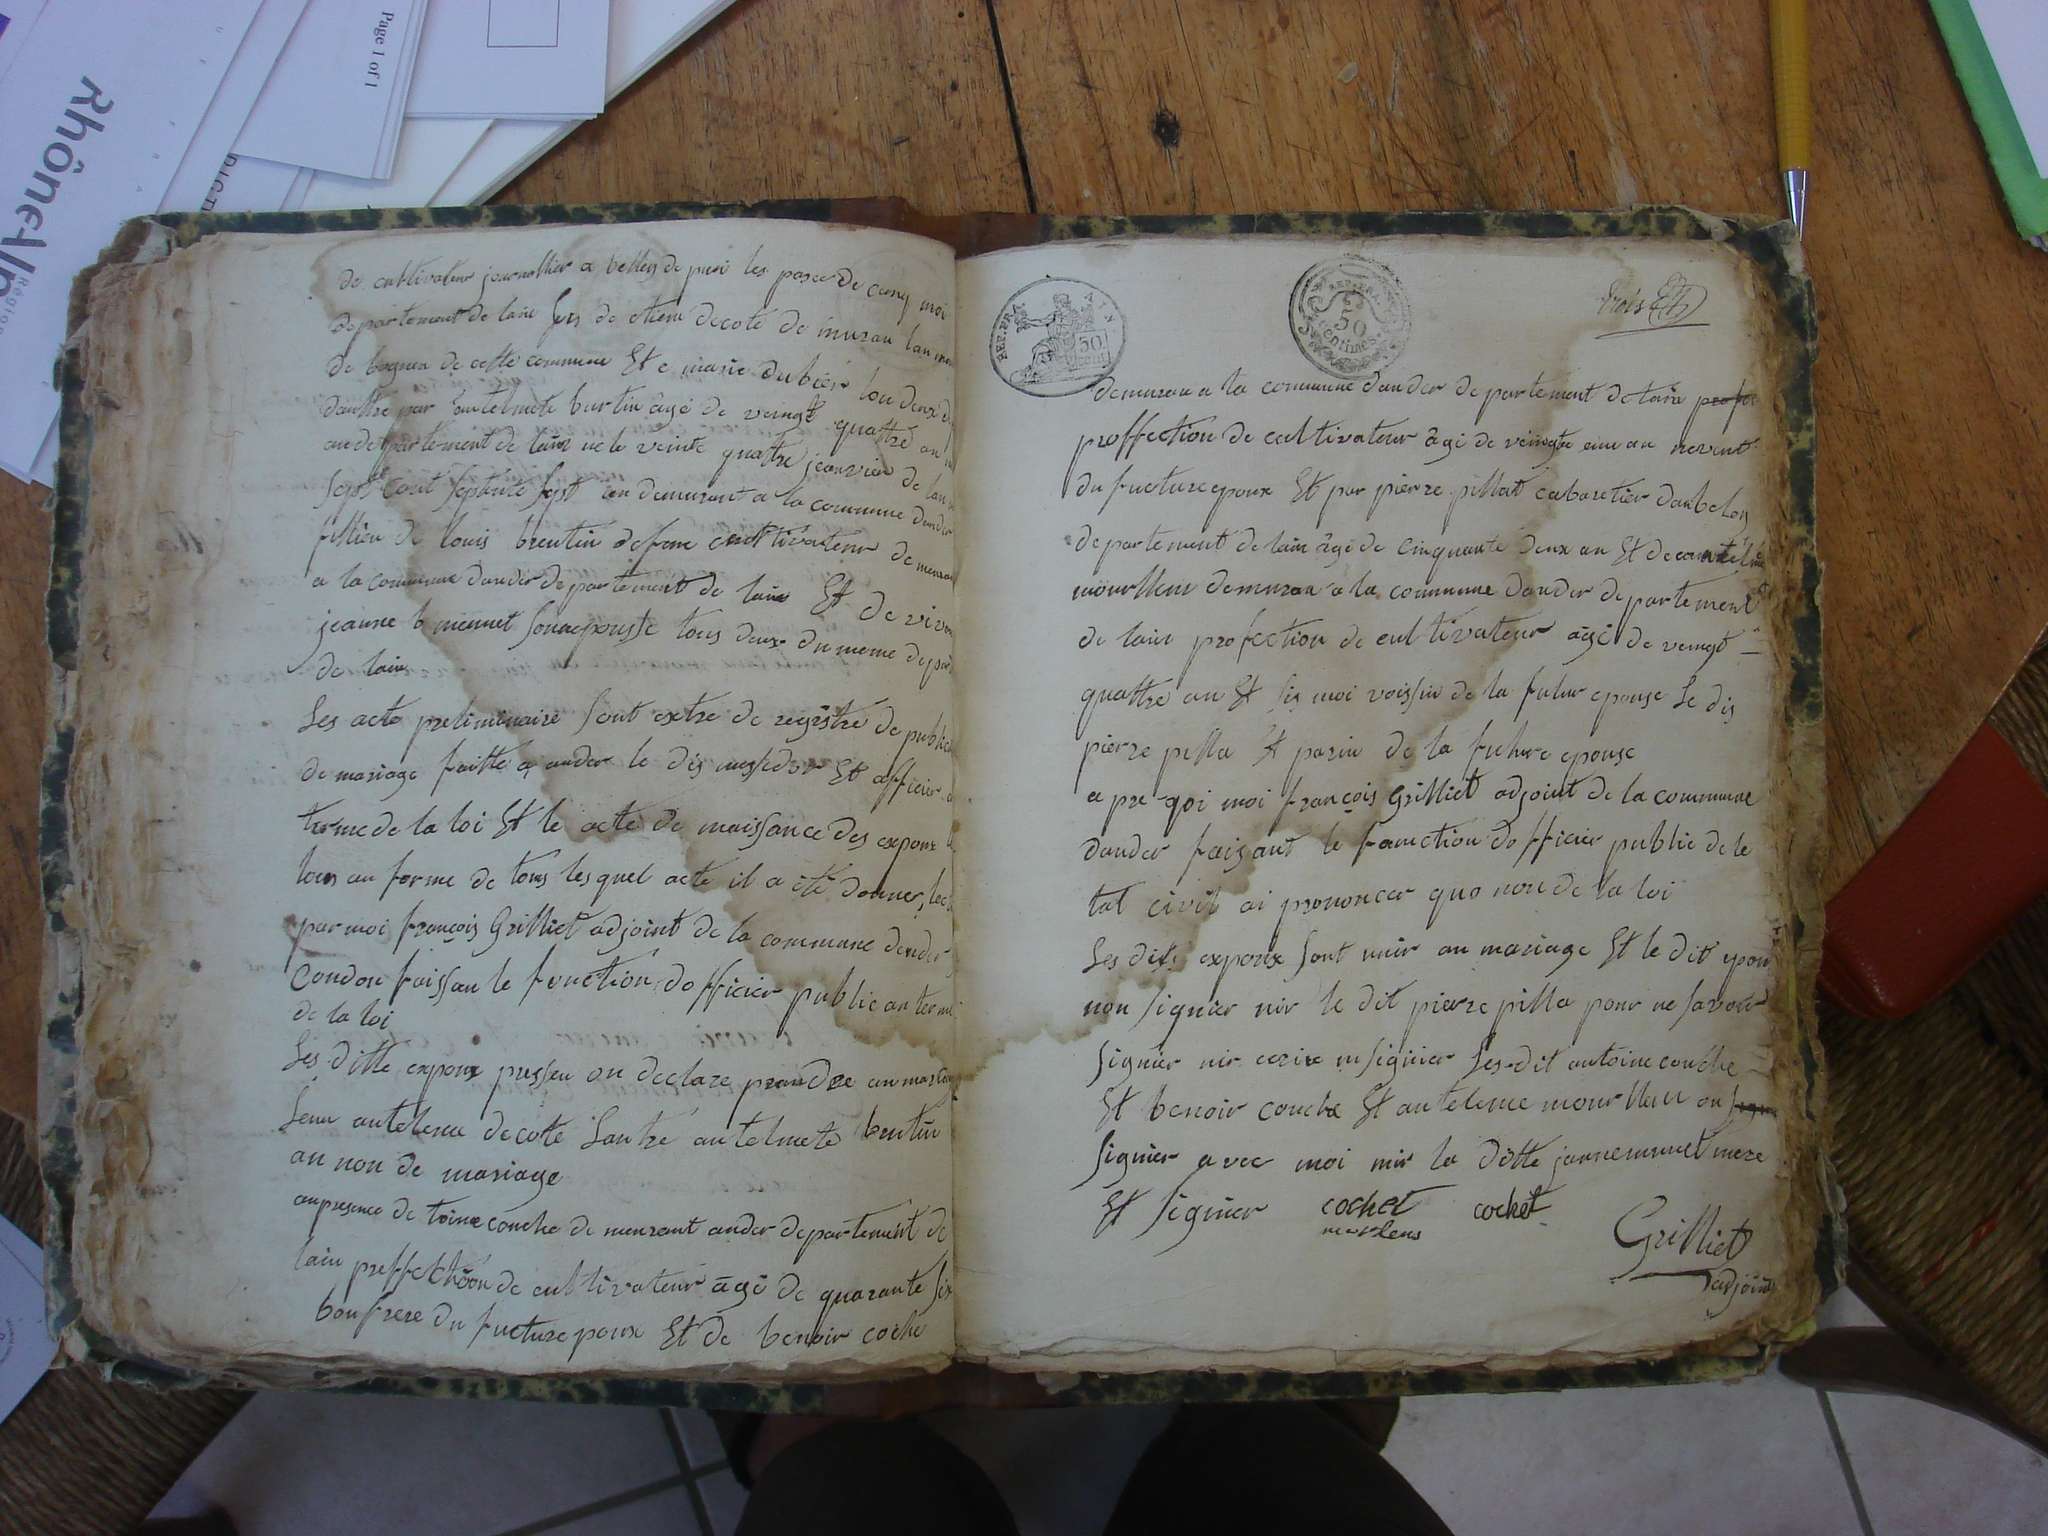 Rhône-Alp
Région
Page 1 of 1
de cultivateur journallier a belley de puri les pase de cenq moi
departement de lain fers de etiene decote de muran lan
de bognen de cette commune Et e marie dubier lou deux
dauttre par antelmete burtin âgé de veingt quattre an
au departement de lain ne le veinte quattre jeanvier de lan
sept cent septente sept an demurant a la commune dander
fillieu de louis breutin defeme cultivateur de
a la commune dander departement de lain Et de viven
jeanne b miennet sonaepousse tous deux du meme depar
de lain
Les acte preliminaire sont extre de registre de public
de mariage faitte a ander le dis Et afficier
terme de la loi Et le acte de naissance des expoux
tous au forme de tous lesquel acte il a été donner lec
par moi françois Grilliet adjoint de la commune dander
Condon faissan le fonction dofficier public an terme
de la loi
Les ditte expoux pressen on declare prandre an mariage
lenn antelme decote Lautre antelmete brutin
au non de mariage
anpresence de toine couche de murant ander departement de
lain proffection de cultivateur âgé de quarante six
boufrere du fucture poux Et de benoir coche
REP. FRA. AIN
50 cent
REP. FRA.
50
centimes
trois
demuran a la commune dander departement de lain
proffection de cultivateur âgé de veingte eun an nevent
du fucture epoux Et par pierre pillat cabaretier danbelon
departement de lain âgé de cinquante deux an Et de
mourllieu demuran a la commune dander departement
de lain profection de cultivateur âgé de veingt
quattre an Et sis moi voissin de la futur epouse Le dis
pierre pilla Et parin de la future epouse
a pre qoi moi françois Grilliet adjoint de la commune
dander faisant le fanction dofficier public de le
tat civil ai prononcer quo non de la loi
Les dits expoux sont unir an mariage Et le dit epou
non signier nir le dit pierre pilla pour ne savoir
signier nir ecrire ni signier Les dit antoine couche
Et benoir couche Et antelme mourllieu on
signier avec moi nir la ditte jannemunet mere
Et signier cochet cochet
Grilliet
adjoint